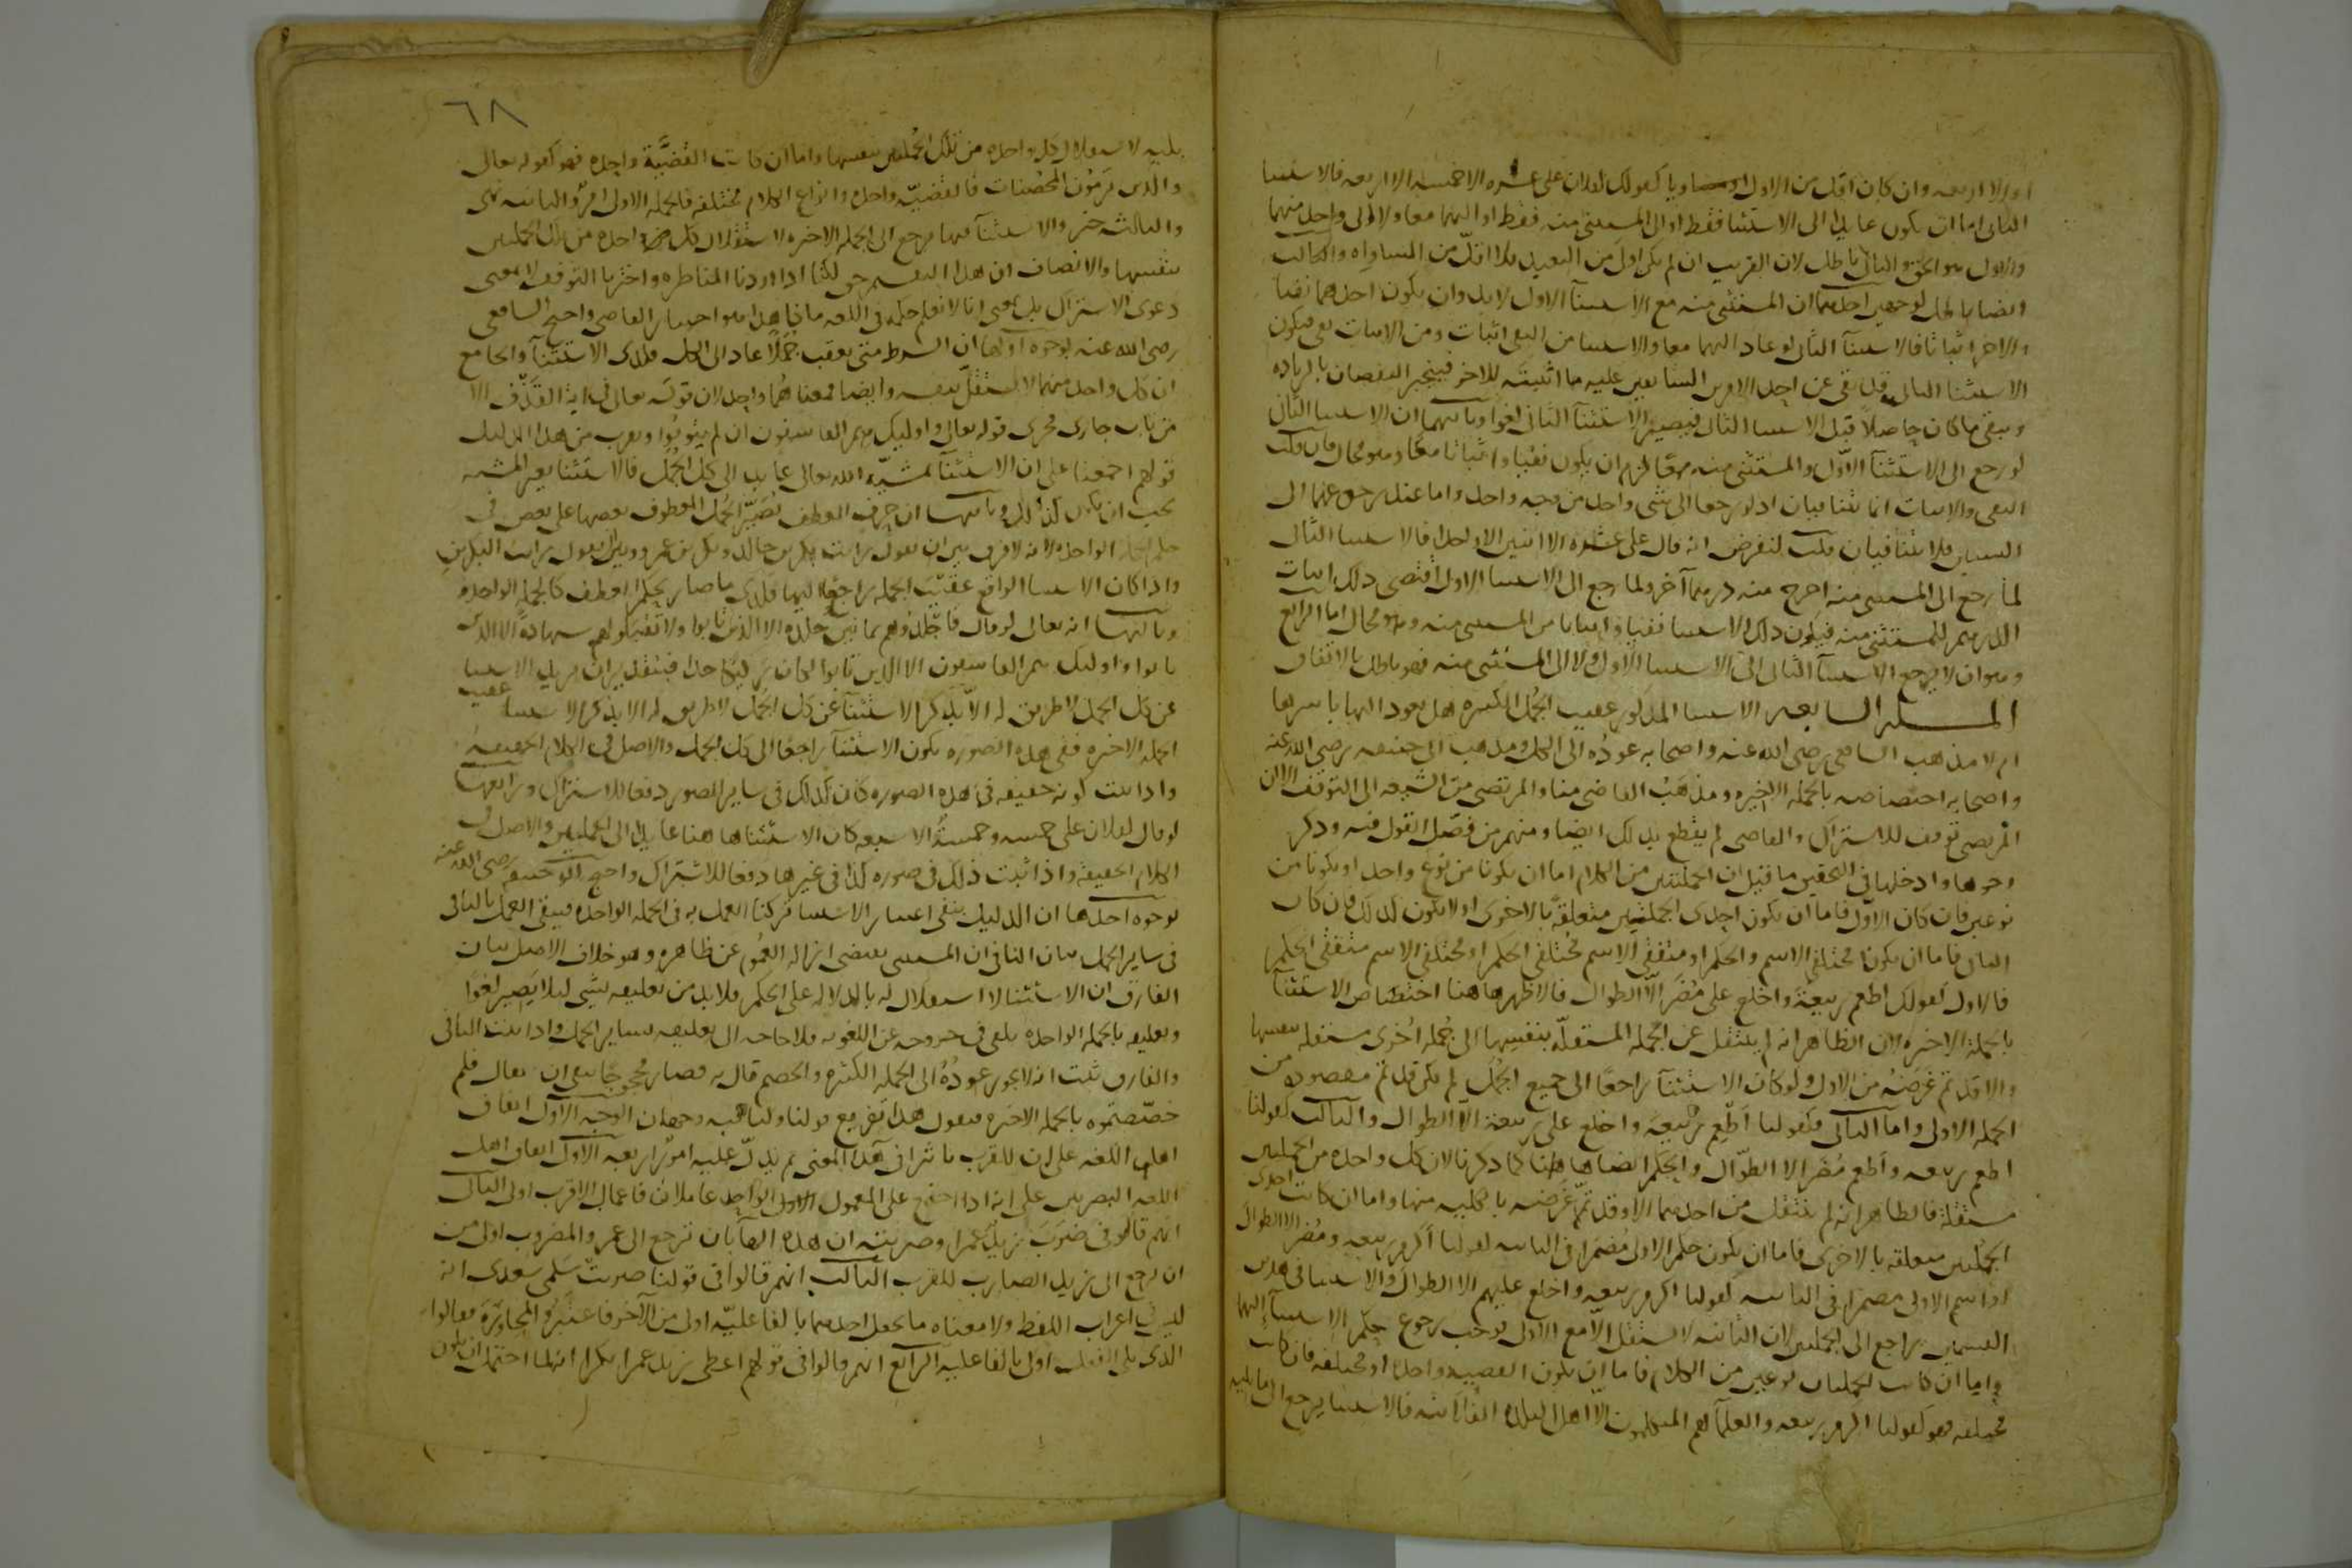 او الا اربعه وان كان اقل من الاول او مساويا كقولك لفلان على عشره الا خمسه الا اربعه فالاستثنا
الثانى اما ان يكون عايدا الى الاستثنا فقط او الى المستثنى منه فقط او اليهما معا او لا الى واحد منهما
والاول هو الحق والثانى باطل لان القريب ان لم يكن اولى من البعيد فلا اقل من المساواه والثالث
ايضا باطل لوجهين احدهما ان المستثنى منه مع الاستثنآ الاول لا بد وان يكون احدهما نفيا
والاخر اثباتا فالاستثنآ الثانى لو عاد اليهما معا والاستثنا من النفى اثبات ومن الاثبات نفى فيكون
الاستثنا الثانى قد نفى عن احد الامرين السابقين عليه ما اثبته للاخر فينجبر النقصان بالزياده
ويبقى ما كان حاصلا قبل الاستثنا الثانى فيصير الاستثنآ الثانى لغوا وثانيهما ان الاستثنا الثانى
لو رجع الى الاستثنآ الاول والمستثنى منه معا لزم ان يكون نفيا واثباتا معا وهو محال فان قلت
النفى والاثبات انما يتنافيان اذ لو رجعا الى شى واحد من وجه واحد واما عند رجوعهما الى
الشيئين فلا يتنافيان قلت لنفرض انه قال على عشره الا اثنين الا واحدا فالاستثنا الثانى
لما رجع الى المستثنى منه اخرج منه درهما آخر ولما رجع الى الاستثنا الاول اقتضى ذلك اثبات
الدرهم للمستثنى منه فيكون ذلك الاستثنا نفيا واثباتا من المستثنى منه وهو محال اما الرابع
وهو ان لا يرجع الاستثنآ الثانى الى الاستثنا الاول ولا الى المستثنى منه فهو باطل بالاتفاق
المسله السابعه الاستثنا المذكور عقيب الجمل الكثيره هل يعود اليها باسرها
ام لا مذهب الشافعى رضى الله عنه واصحابه عوده الى الكل ومذهب ابى حنيفه رضى الله عنه
واصحابه اختصاصه بالجمله الاخيره ومذهب القاضى منا والمرتضى من الشيعه الى التوقف الا ان
المرتضى توقف للاشتراك والقاضى لم يقطع بذلك ايضا ومنهم من فصل القول فيه وذكر
وجوها وادخلها فى التحقيق ما قيل ان الجملتين من الكلام اما ان يكونا من نوع واحد او يكونا من
نوعين فان كان الاول فاما ان يكون احدى الجملتين متعلقة بالاخرى او لا يكون كذلك فان كان
الثانى فاما ان يكونا مختلفى الاسم والحكم او متفقى الاسم مختلفى الحكم او مختلفى الاسم متفقى الحكم
فالاول كقولك اطعم ربيعة واخلع على مضر الا الطوال فالاظهر هاهنا اختصاص الاستثنآ
بالجملة الاخيره لان الظاهر انه لم ينتقل عن الجملة المستقلة بنفسها الى جمله اخرى مستقله بنفسها
والا وقد تم غرضه من الاول ولو كان الاستثنآ راجعا الى جميع الجمل لم يكن قد تم مقصوده من
الجمله الاولى واما الثانى فكقولنا اطعم ربيعة واخلع على ربيعة الا الطوال والثالث كقولنا
اطعم ربيعه واطعم مضر الا الطوال والحكم ايضا هاهنا كما ذكرنا لان كل واحده من الجملتين
مستقلة فالظاهر انه لم ينتقل من احديهما الا وقد تم غرضه بالكليه منها واما ان كانت احدى
الجملتين متعلقه بالاخرى فاما ان يكون حكم الاولى مضمرا فى الثانيه كقولنا اكرم ربيعه ومضر الا الطوال
او اسم الاولى مضمرا فى الثانيه كقولنا اكرم ربيعه واخلع عليهم الا الطوال والاستثنا فى هذين
القسمين راجع الى الجملتين لان الثانيه لا تستقل الا مع الاولى فوجب رجوع حكم الاستثنآ اليهما
واما ان كانت الجملتان نوعين من الكلام فاما ان يكون القضيه واحدة او مختلفه فان كانت
مختلفه فهو كقولنا اكرم ربيعه والعلمآ هم المتكلمون الا اهل البلده الفلانيه فالاستثنا يرجع الى ما يليه
٦٨
يليه لاستقلال كل واحده من تلك الجملتين بنفسها واما ان كانت القضية واحده فهو كقوله تعالى
والذين يرمون المحصنات فالقضية واحده وانواع الكلام مختلفه فالجمله الاولى امر والثانيه نهى
والثالثه خبر والاستثنآ فيها يرجع الى الجمله الاخيره لاستقلال كل واحده من تلك الجملتين
بنفسها والانصاف ان هذا التقسيم حق لكنا اذا اردنا المناظره واخترنا التوقف لا بمعنى
دعوى الاشتراك بل بمعنى انا لا نعلم حكمه فى اللغه ماذا هذا هو اختيار القاضى واحتج الشافعى
رضى الله عنه بوجوه اولها ان الشرط متى تعقب جملا عاد الى الكل فكذى الاستثنآ والجامع
ان كل واحد منهما لا يستقل بنفسه وايضا فمعناهما واحد لان قوله تعالى فى اية القذف الا
من تاب جارى مجرى قوله تعالى واوليك هم الفاسقون ان لم يتوبوا ويقرب من هذا الدليل
قولهم اجمعنا على ان الاستثنآ بمشية الله تعالى عايد الى كل الجمل فالاستثنا بغير المشيه
يجب ان يكون كذلك وثانيها ان حرف العطف يصير الجمل المعطوف بعضها على بعض فى
حكم الجمله الواحده لانه لا فرق بين ان نقول رايت بكر بن خالد وبكر بن عمرو وبين ان نقول رايت البكرين
واذا كان الاستثنا الواقع عقيب الجمله راجعا اليها فكذى ما صار بحكم العطف كالجملة الواحده
وثالثها انه تعالى لو قال فاجلدوهم ثمانين جلده الا الذين تابوا ولا تقبلوا لهم شهادة الا الذين
تابوا واوليك هم الفاسقون الا الذين تابوا لكان ركيكا جدا فبتقدير ان يريد الاستثنا
عن كل الجمل لا طريق له الا بذكر الاستثنآ عن كل الجمل لا طريق له الا بذكر الاستثنا عقيب
الجمله الاخيره ففى هذه الصوره يكون الاستثنآ راجعا الى كل الجمل والاصل فى الكلام الحقيقه
واذا ثبت كونه حقيقه فى هذه الصوره كان كذلك فى ساير الصور دفعا للاشتراك ورابعها
لو قال لفلان على خمسه وخمسة الا سبعه كان الاستثنا هاهنا عايدا الى الجملتين والاصل فى
الكلام الحقيقة واذا ثبت ذلك فى صوره كذا فى غيرها دفعا للاشتراك واحتج ابو حنيفه رضى الله عنه
بوجوه احدها ان الدليل ينفى اعتبار الاستثنا تركنا العمل به فى الجمله الواحده فيبقى العمل بالثانى
فى ساير الجمل بيان النافى ان المستثنى يقتضى ازالة العموم عن ظاهره وهو خلاف الاصل بيان
الفارق ان الاستثنا لا استقلال له بالدلاله على الحكم فلا بد من تعليقه بشى ليلا يصير لغوا
وتعليقه بالجمله الواحده يكفى فى خروجه عن اللغويه فلا حاجه الى تعليقه بساير الجمل واذا ثبت النافى
والفارق ثبت انه لا يجوز عوده الى الجمله الكثيره والخصم قال به فصار محجوجا بقى ان يقال فلم
خصصتموه بالجمله الاخيره فنقول هذا تفريع قولنا ولنا فيه وجهان الوجه الاول اتفاق
اهل اللغه على ان للقرب تاثيرا فى هذا المعنى ثم يدل عليه امور اربعه الاول اتفاق اهل
اللغه البصريين على انه اذا اجتمع على المعمول الواحد عاملان فاعمال الاقرب اولى الثانى
انهم قالوا فى ضرب زيد عمرا وضربته ان هذه الهآ بان ترجع الى عمرو المضروب اولى من
ان ترجع الى زيد الضارب للقرب الثالث انهم قالوا فى قولنا ضربت سلمى سعدى انه
ليس فى اعراب اللفظ ولا معناه ما يجعل احديهما بالفاعلية اولى من الآخر فاعتبروا المجاورة فقالوا
الذى يلى الفعل اولى بالفاعليه الرابع انهم قالوا فى قولهم اعطى زيد عمرا بكرا انه لما احتمل ان يكون